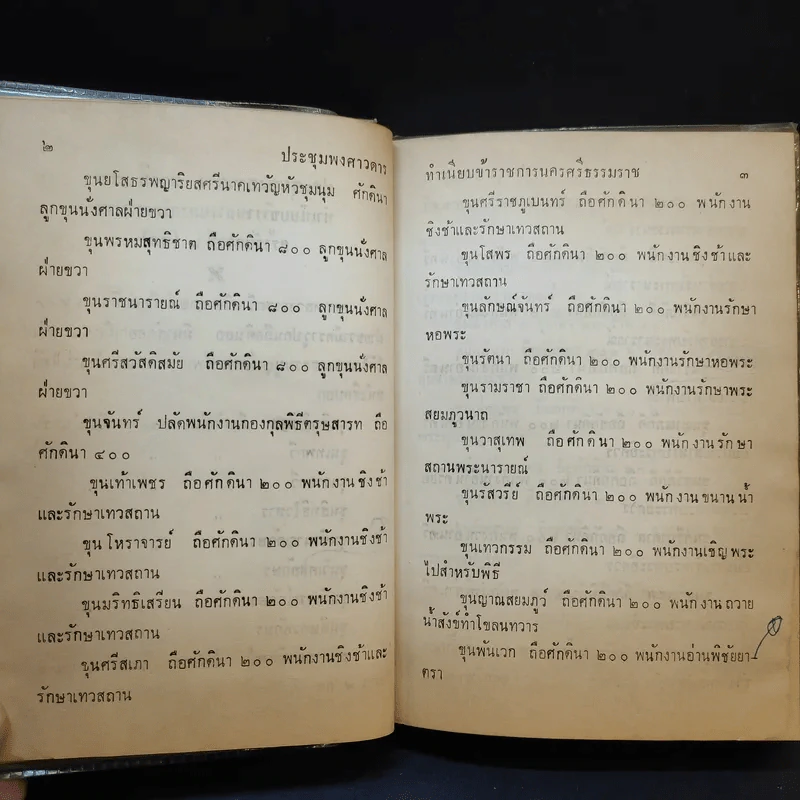 ๒
ประชุมพงศาวดาร
ขุนยโสธรพญาริยสศรีนาคเทวัญหัวชุมนุม ศักดินา
ลูกขุนนั่งศาลฝ่ายขวา
ขุนพรหมสุทธิชาต ถือศักดินา ๘๐๐ ลูกขุนนั่งศาล
ฝ่ายขวา
ขุนราชนารายณ์ ถือศักดินา ๘๐๐ ลูกขุนนั่งศาล
ฝ่ายขวา
ขุนศรีสวัสดิสมัย ถือศักดินา ๘๐๐ ลูกขุนนั่งศาล
ฝ่ายขวา
ขุนจันทร์ ปลัดพนักงานกองกุลพิธีตรุษสารท ถือ
ศักดินา ๔๐๐
ขุนเท้าเพชร ถือศักดินา ๒๐๐ พนักงานชิงช้า
และรักษาเทวสถาน
ขุนโหราจารย์ ถือศักดินา ๒๐๐ พนักงานชิงช้า
และรักษาเทวสถาน
ขุนมริทธิเสรียน ถือศักดินา ๒๐๐ พนักงานชิงช้า
และรักษาเทวสถาน
ขุนศรีสเภา ถือศักดินา ๒๐๐ พนักงานชิงช้าและ
รักษาเทวสถาน
ทำเนียบข้าราชการนครศรีธรรมราช ๓
ขุนศรีราชภูเบนทร์ ถือศักดินา ๒๐๐ พนักงาน
ชิงช้าและรักษาเทวสถาน
ขุนโสพร ถือศักดินา ๒๐๐ พนักงานชิงช้าและ
รักษาเทวสถาน
ขุนลักษณ์จันทร์ ถือศักดินา ๒๐๐ พนักงานรักษา
หอพระ
ขุนรัตนา ถือศักดินา ๒๐๐ พนักงานรักษาหอพระ
ขุนรามราชา ถือศักดินา ๒๐๐ พนักงานรักษาพระ
สยมภูวนาถ
ขุนวาสุเทพ ถือศักดินา ๒๐๐ พนักงานรักษา
สถานพระนารายณ์
ขุนรัสวรีย์ ถือศักดินา ๒๐๐ พนักงานขนานน้ำ
พระ
ขุนเทวกรรม ถือศักดินา ๒๐๐ พนักงานเชิญพระ
ไปสำหรับพิธี
ขุนญาณสยมภูว์ ถือศักดินา ๒๐๐ พนักงานถวาย
น้ำสังข์ทำโขลนทวาร
ขุนพันเวก ถือศักดินา ๒๐๐ พนักงานอ่านพิชัยยา-
ตรา